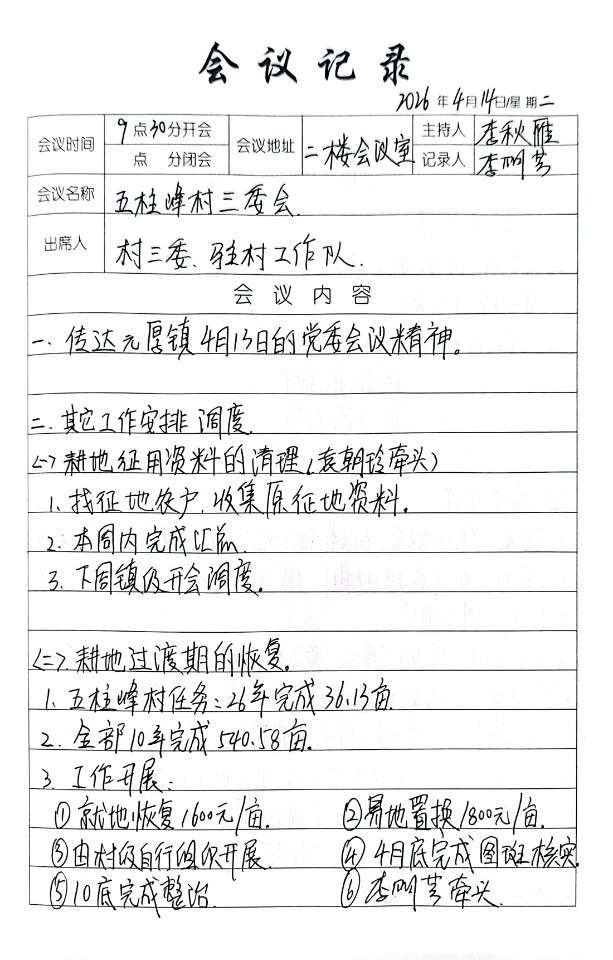 会议记录
2026年4月14日/星期二
会议时间 9点30分开会 会议地址 二楼会议室 主持人 李秋雁
点 分闭会 记录人 李明芸
会议名称 五柱峰村三委会.
出席人 村三委、驻村工作队.
会议内容
一、传达元厚镇4月13日的党委会议精神。
二.其它工作安排调度.
(一)耕地征用资料的清理(袁朝玲牵头)
1.找征地农户.收集原征地资料。
2.本周内完成汇总.
3.下周镇级开会调度。
(二).耕地过渡期的恢复。
1.五柱峰村任务:26年完成36.13亩.
2.全部10年完成540.58亩.
3.工作开展:
①就地恢复1600元/亩. ②易地置换1800元/亩.
③由村级自行组织开展. ④4月底完成图斑核实.
⑤10底完成整治. ⑥李明芸牵头.